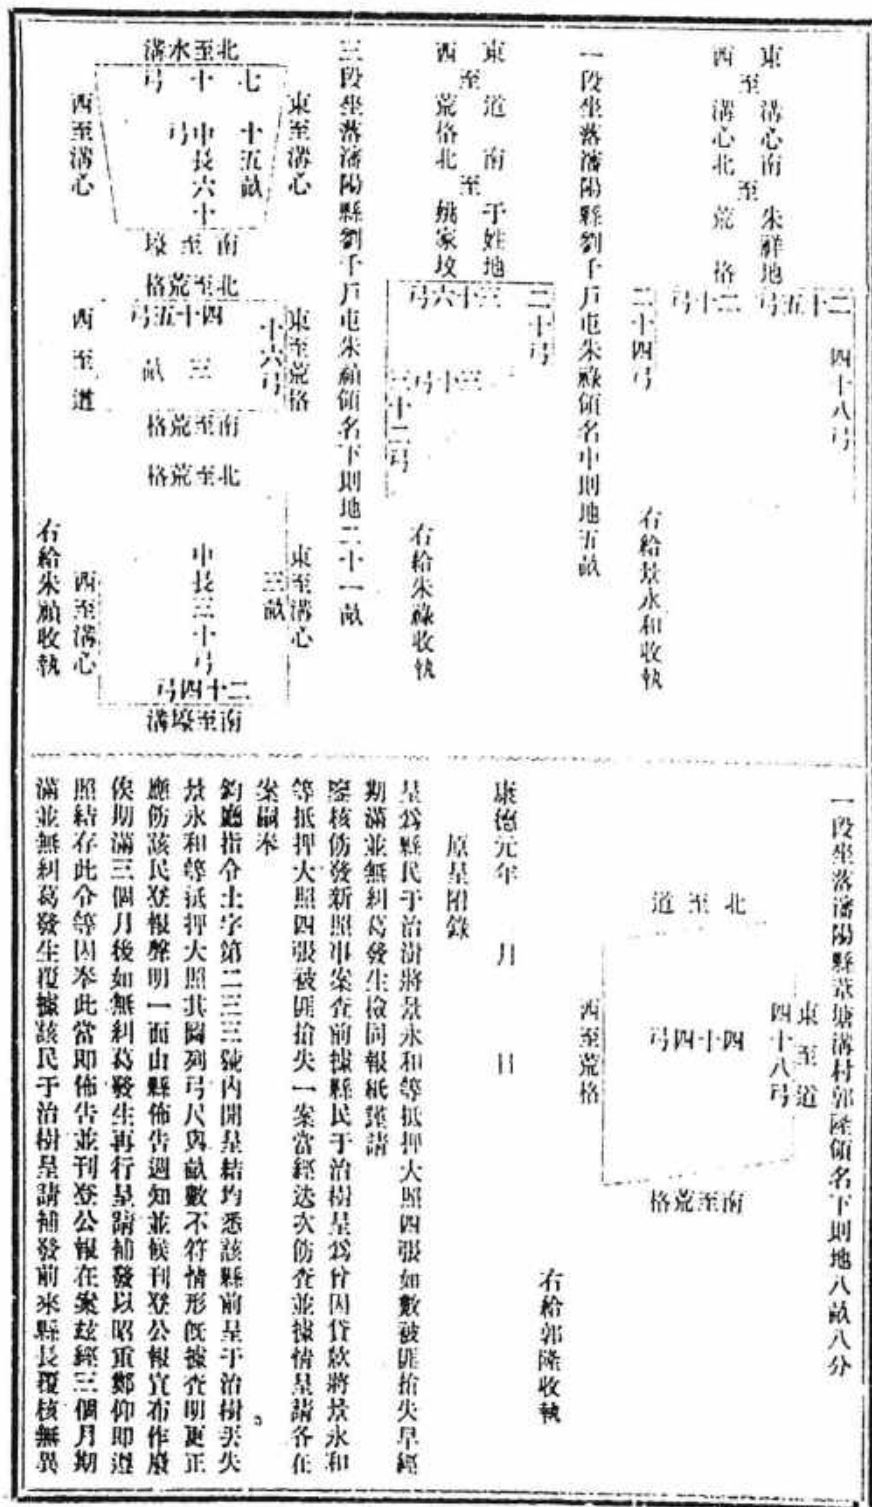 東至溝心南至朱祥地
西至溝心北至荒格
二十五弓
二十弓
四十八弓
二十四弓
右給景永和收執
一段坐落瀋陽縣劉千戶屯朱祿領名中則地五畝
東至道南至于姓地
西至荒格北至姚家墳
二十弓
三十六弓
三十弓
三十二弓
右給朱祿收執
三段坐落瀋陽縣劉千戶屯朱顧領名下則地二十一畝
北至水溝
東至溝心
七十弓
十五畝
中長六十弓
西至溝心
南至壕
北至荒格
東至荒格
十六弓
四十五弓
三畝
西至道
南至荒格
北至荒格
東至溝心
三畝
中長三十弓
二十四弓
西至溝心
南至壕溝
右給朱顧收執
一段坐落瀋陽縣葦塘溝村郭隆領名下則地八畝八分
北至道
東至道
四十八弓
四十四弓
西至荒格
南至荒格
右給郭隆收執
康德元年 月 日
原呈附錄
呈爲縣民于治澍將景永和等抵押大照四張如數被匪搶失早經
期滿並無糾葛發生檢同報紙謹請
鑒核飭發新照事案查前據縣民于治樹呈爲曾因貸款將景永和
等抵押大照四張被匪搶失一案當經迭次飭查並據情呈請各在
案嗣奉
鈞廳指令土字第二三三號內開呈結均悉該縣前呈于治樹丟失
景永和等抵押大照其圖列弓尺與畝數不符情形旣據查明更正
應飭該民登報聲明一面由縣佈告週知並候刊登公報宣布作廢
俟期滿三個月後如無糾葛發生再行呈請補發以昭重鄭仰即遵
照結存此令等因奉此當即佈告並刊登公報在案玆經三個月期
滿並無糾葛發生覆據該民于治樹呈請補發前來縣長覆核無異